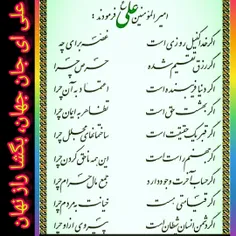 امیرالمؤمنین علی ع فرمودند :
اگر خدا کفیل روزی است غصه برای چه
اگر رزق تقسیم شده حرص چرا
اگر دنیا فریبنده است اعتماد به آن چرا
اگر بهشت حق است تظاهر به ایمان چرا
اگر قبر یک حقیقت است ساختمانهای مجلل چرا
اگر جهنم راست است این همه ناحق کردن چرا
اگر حساب آخرت وجود دارد جمع مال حرام چرا
اگر قیامتی هست خیانت به مردم چرا
اگر دشمن انسان شیطان است پیروی از او چرا
علی ای جان جهان، بگشا راز نهان